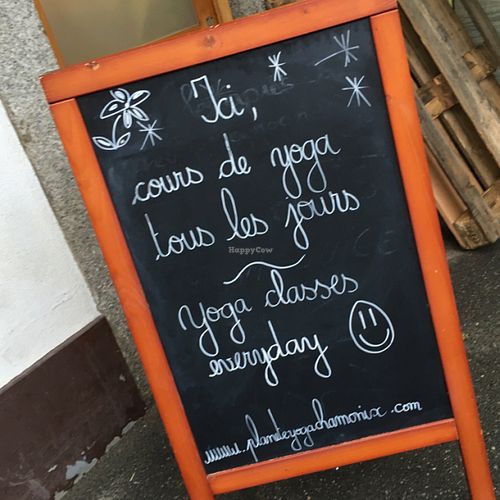 Ici,
cours de yoga
tous les jours
HappyCow
yoga classes
everyday
www.planeteyogachamonix.com